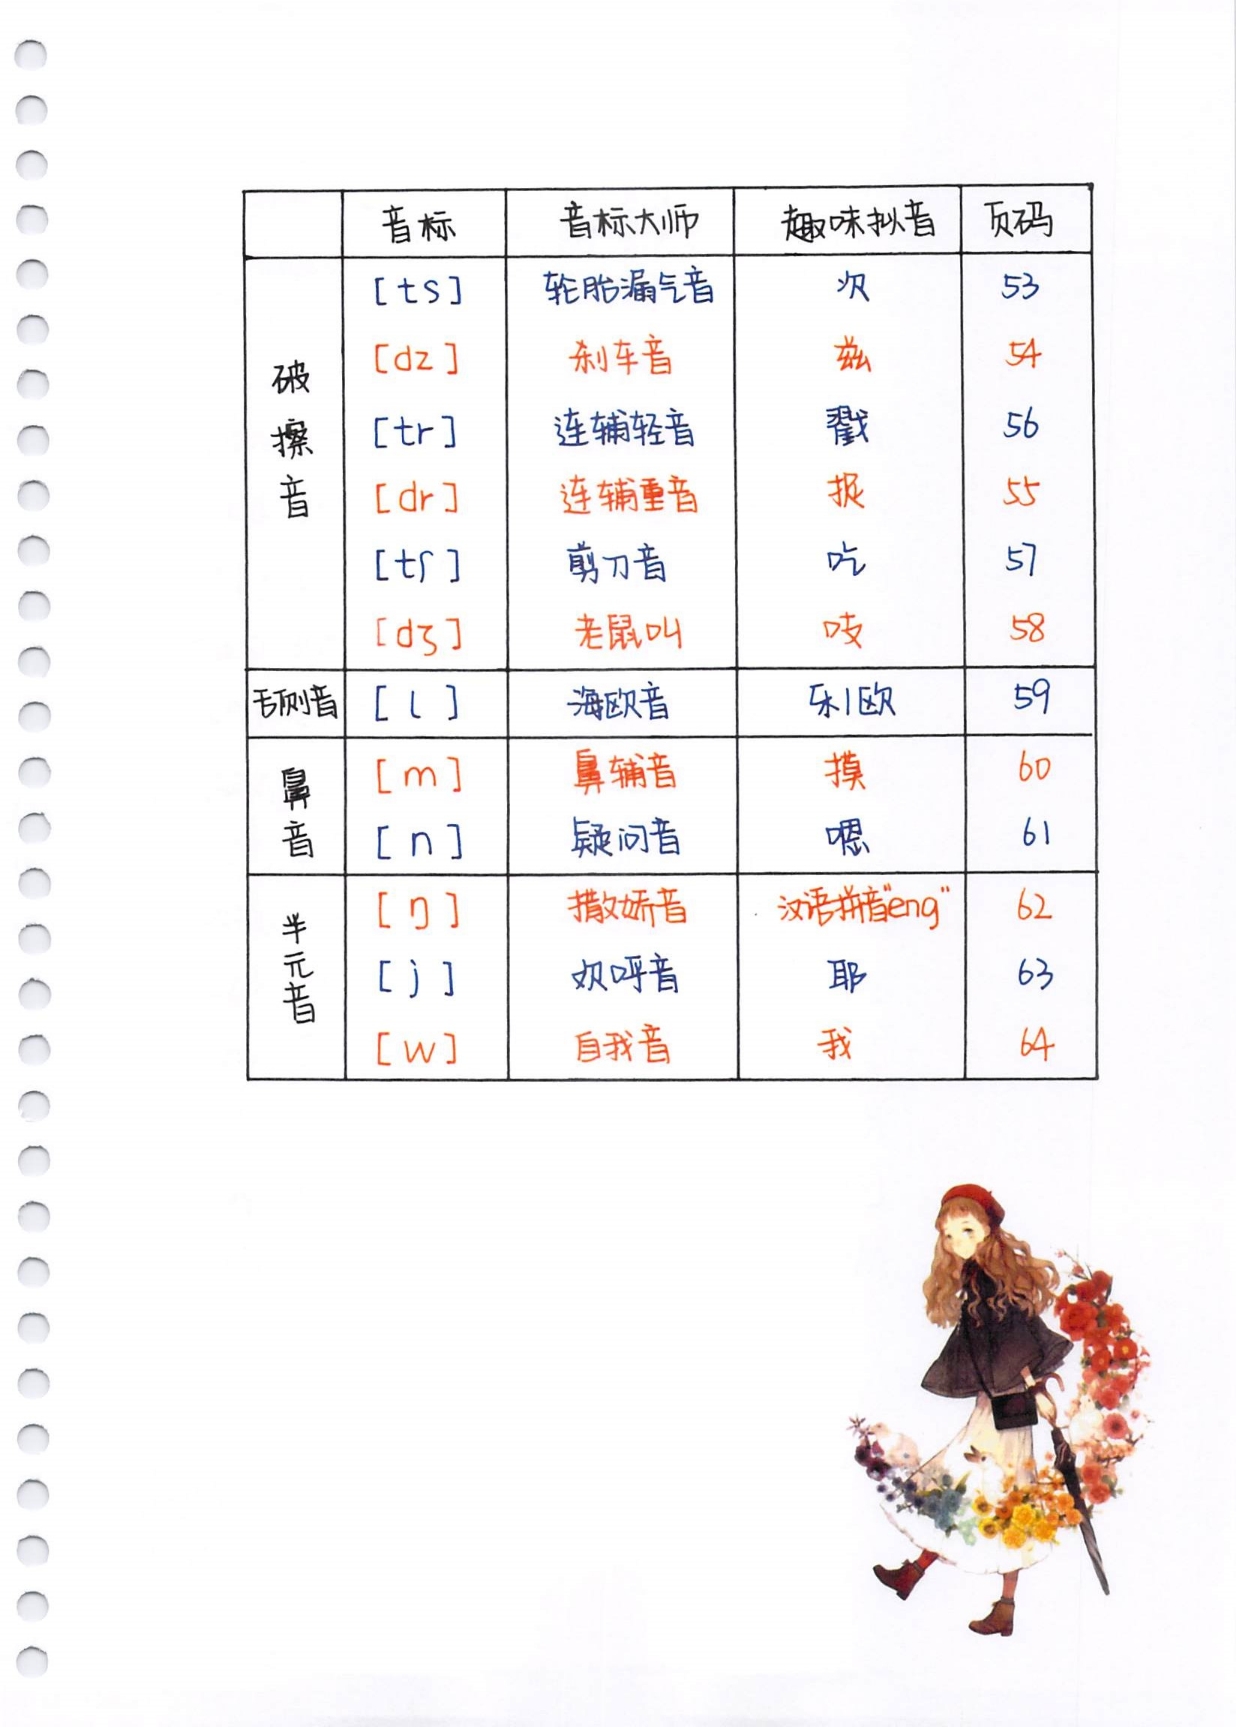 音标 音标大师 趣味拟音 页码
破擦音
[ts] 轮胎漏气音 次 53
[dz] 刹车音 兹 54
[tr] 连辅轻音 戳 56
[dr] 连辅重音 捉 55
[tʃ] 剪刀音 吃 57
[dʒ] 老鼠叫 吱 58
舌侧音 [l] 海欧音 乐/欧 59
鼻音
[m] 鼻辅音 摸 60
[n] 疑问音 嗯 61
半元音
[ŋ] 撒娇音 汉语拼音"eng" 62
[j] 欢呼音 耶 63
[w] 自我音 我 64